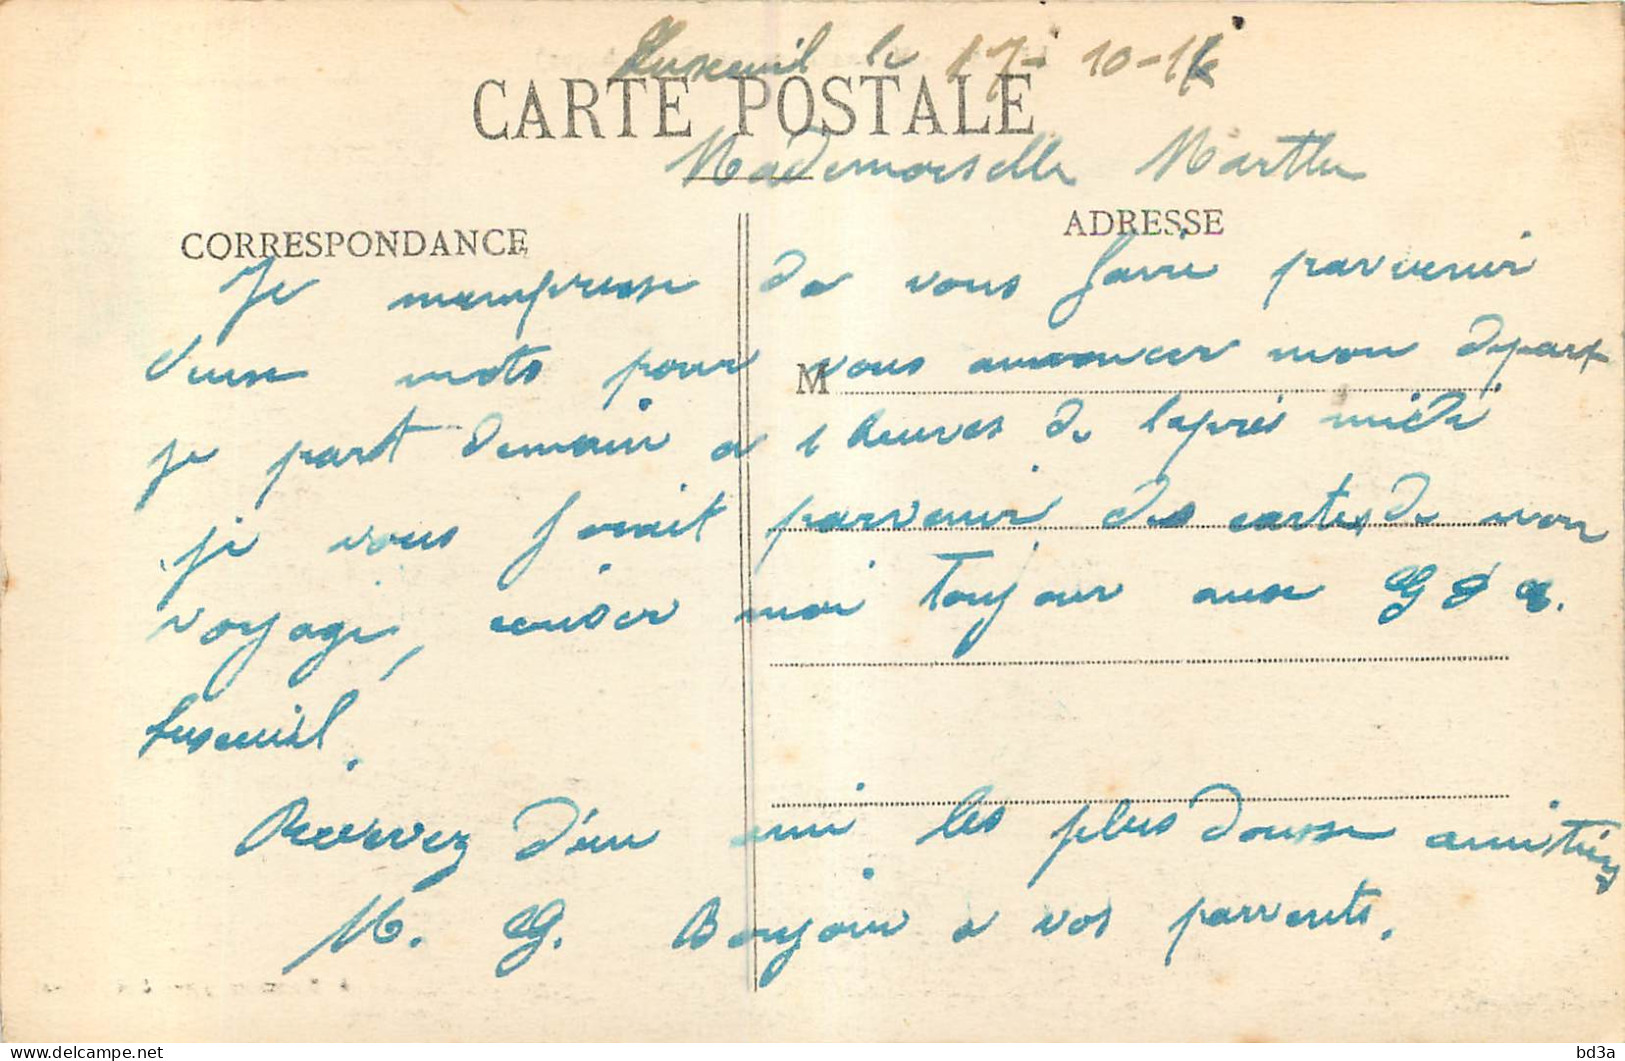 Luxeuil le 17-10-16
CARTE POSTALE
Mademoiselle Marthe
CORRESPONDANCE
ADRESSE
Je mempresse de vous faire parvenir
deuse mots pour vous annoncer mon depart
M
je part demain a 1 heures de laprés midi
je vous ferait parvenir des cartes de mon
voyage, ecriser moi toujour ause G
Luxeuil.
Recevez d'un ami les plus dousse amitiés
M. G. Bonjour a vos parrents.
bd3a